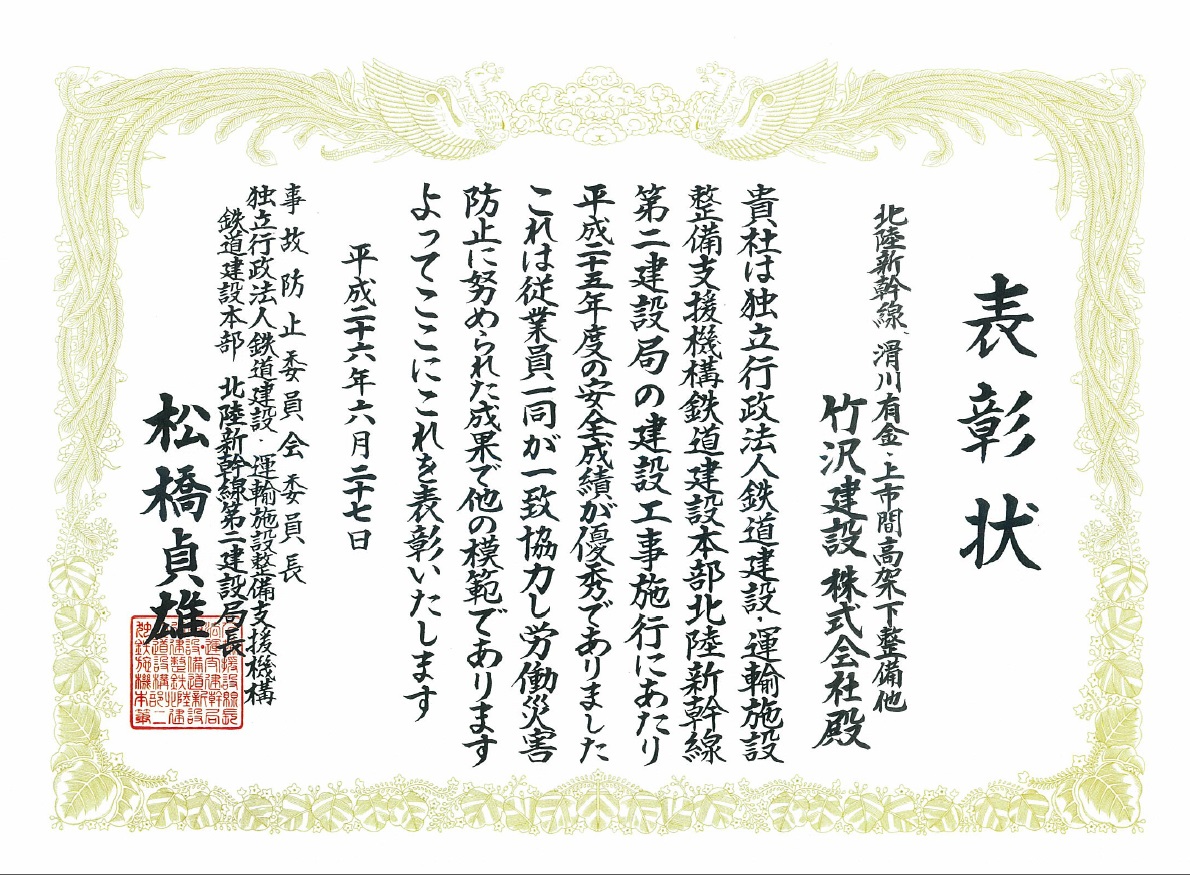 表彰状
北陸新幹線、滑川有金・上市間高架下整備他
竹沢建設株式会社殿
貴社は独立行政法人鉄道建設・運輸施設
整備支援機構鉄道建設本部北陸新幹線
第二建設局の建設工事施行にあたり
平成二十五年度の安全成績が優秀でありました
これは従業員一同が一致協力し労働災害
防止に努められた成果で他の模範であります
よってここにこれを表彰いたします
平成二十六年六月二十七日
事故防止委員会委員長
独立行政法人鉄道建設・運輸施設整備支援機構
鉄道建設本部 北陸新幹線第二建設局長
松橋貞雄